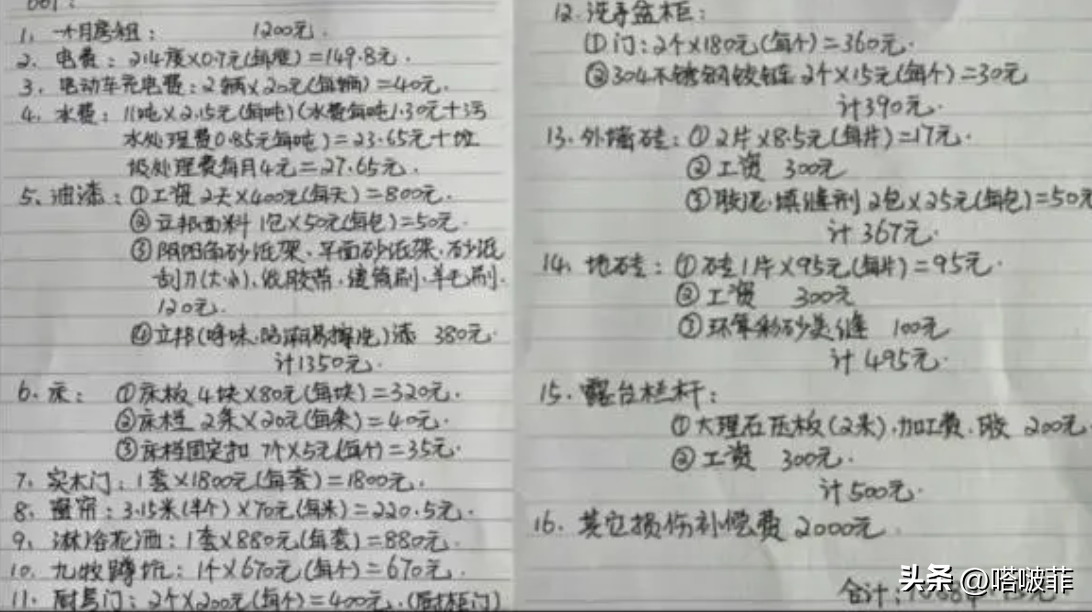 1、一个月房租： 1200元.
2、电费：214度×0.7元(每度)=149.8元.
3、电动车充电费：2辆×20元(每辆)=40元.
4、水费：11吨×2.15元(每吨)(水费每吨1.30元+污
水处理费0.85元每吨)=23.65元+垃
圾处理费每月4元=27.65元.
5、油漆：①工资 2天×400元(每天)=800元.
②立邦面料 1包×50元(每包)=50元.
③阴阳角砂纸架、平面砂纸架、砂纸
刮刀(大小)、纸胶带、建筑刷、羊毛刷.
120元.
④立邦(净味 防潮易擦洗)漆 380元.
计1350元.
6、床： ①床板 4块×80元(每块)=320元.
②床档 2条×20元(每条)=40元.
③床档固定扣 7个×5元(每个)=35元.
7、实木门：1套×1800元(每套)=1800元.
8、窗帘：3.15米(半个)×70元(每米)=220.5元.
9、淋浴花洒：1套×880元(每套)=880元.
10、九牧蹲坑：1个×670元(每个)=670元.
11、厨房门：2个×200元(每个)=400元.(厨柜门)
12、洗手盆柜：
①门：2个×180元(每个)=360元.
②304不锈钢铰链 2个×15元(每个)=30元
计390元.
13、外墙砖：①2片×8.5元(每片)=17元.
②工资 300元
③胶泥、填缝剂 2包×25元(每包)=50元
计 367元.
14、地砖：①砖1片×95元(每片)=95元.
②工资 300元
③环氧彩砂美缝 100元
计 495元.
15、露台栏杆：
①大理石压板(2条)、加工费、胶 200元
②工资 300元.
计500元.
16、其它损伤补偿费 2000元.
合计：
头条 @嗒啵菲